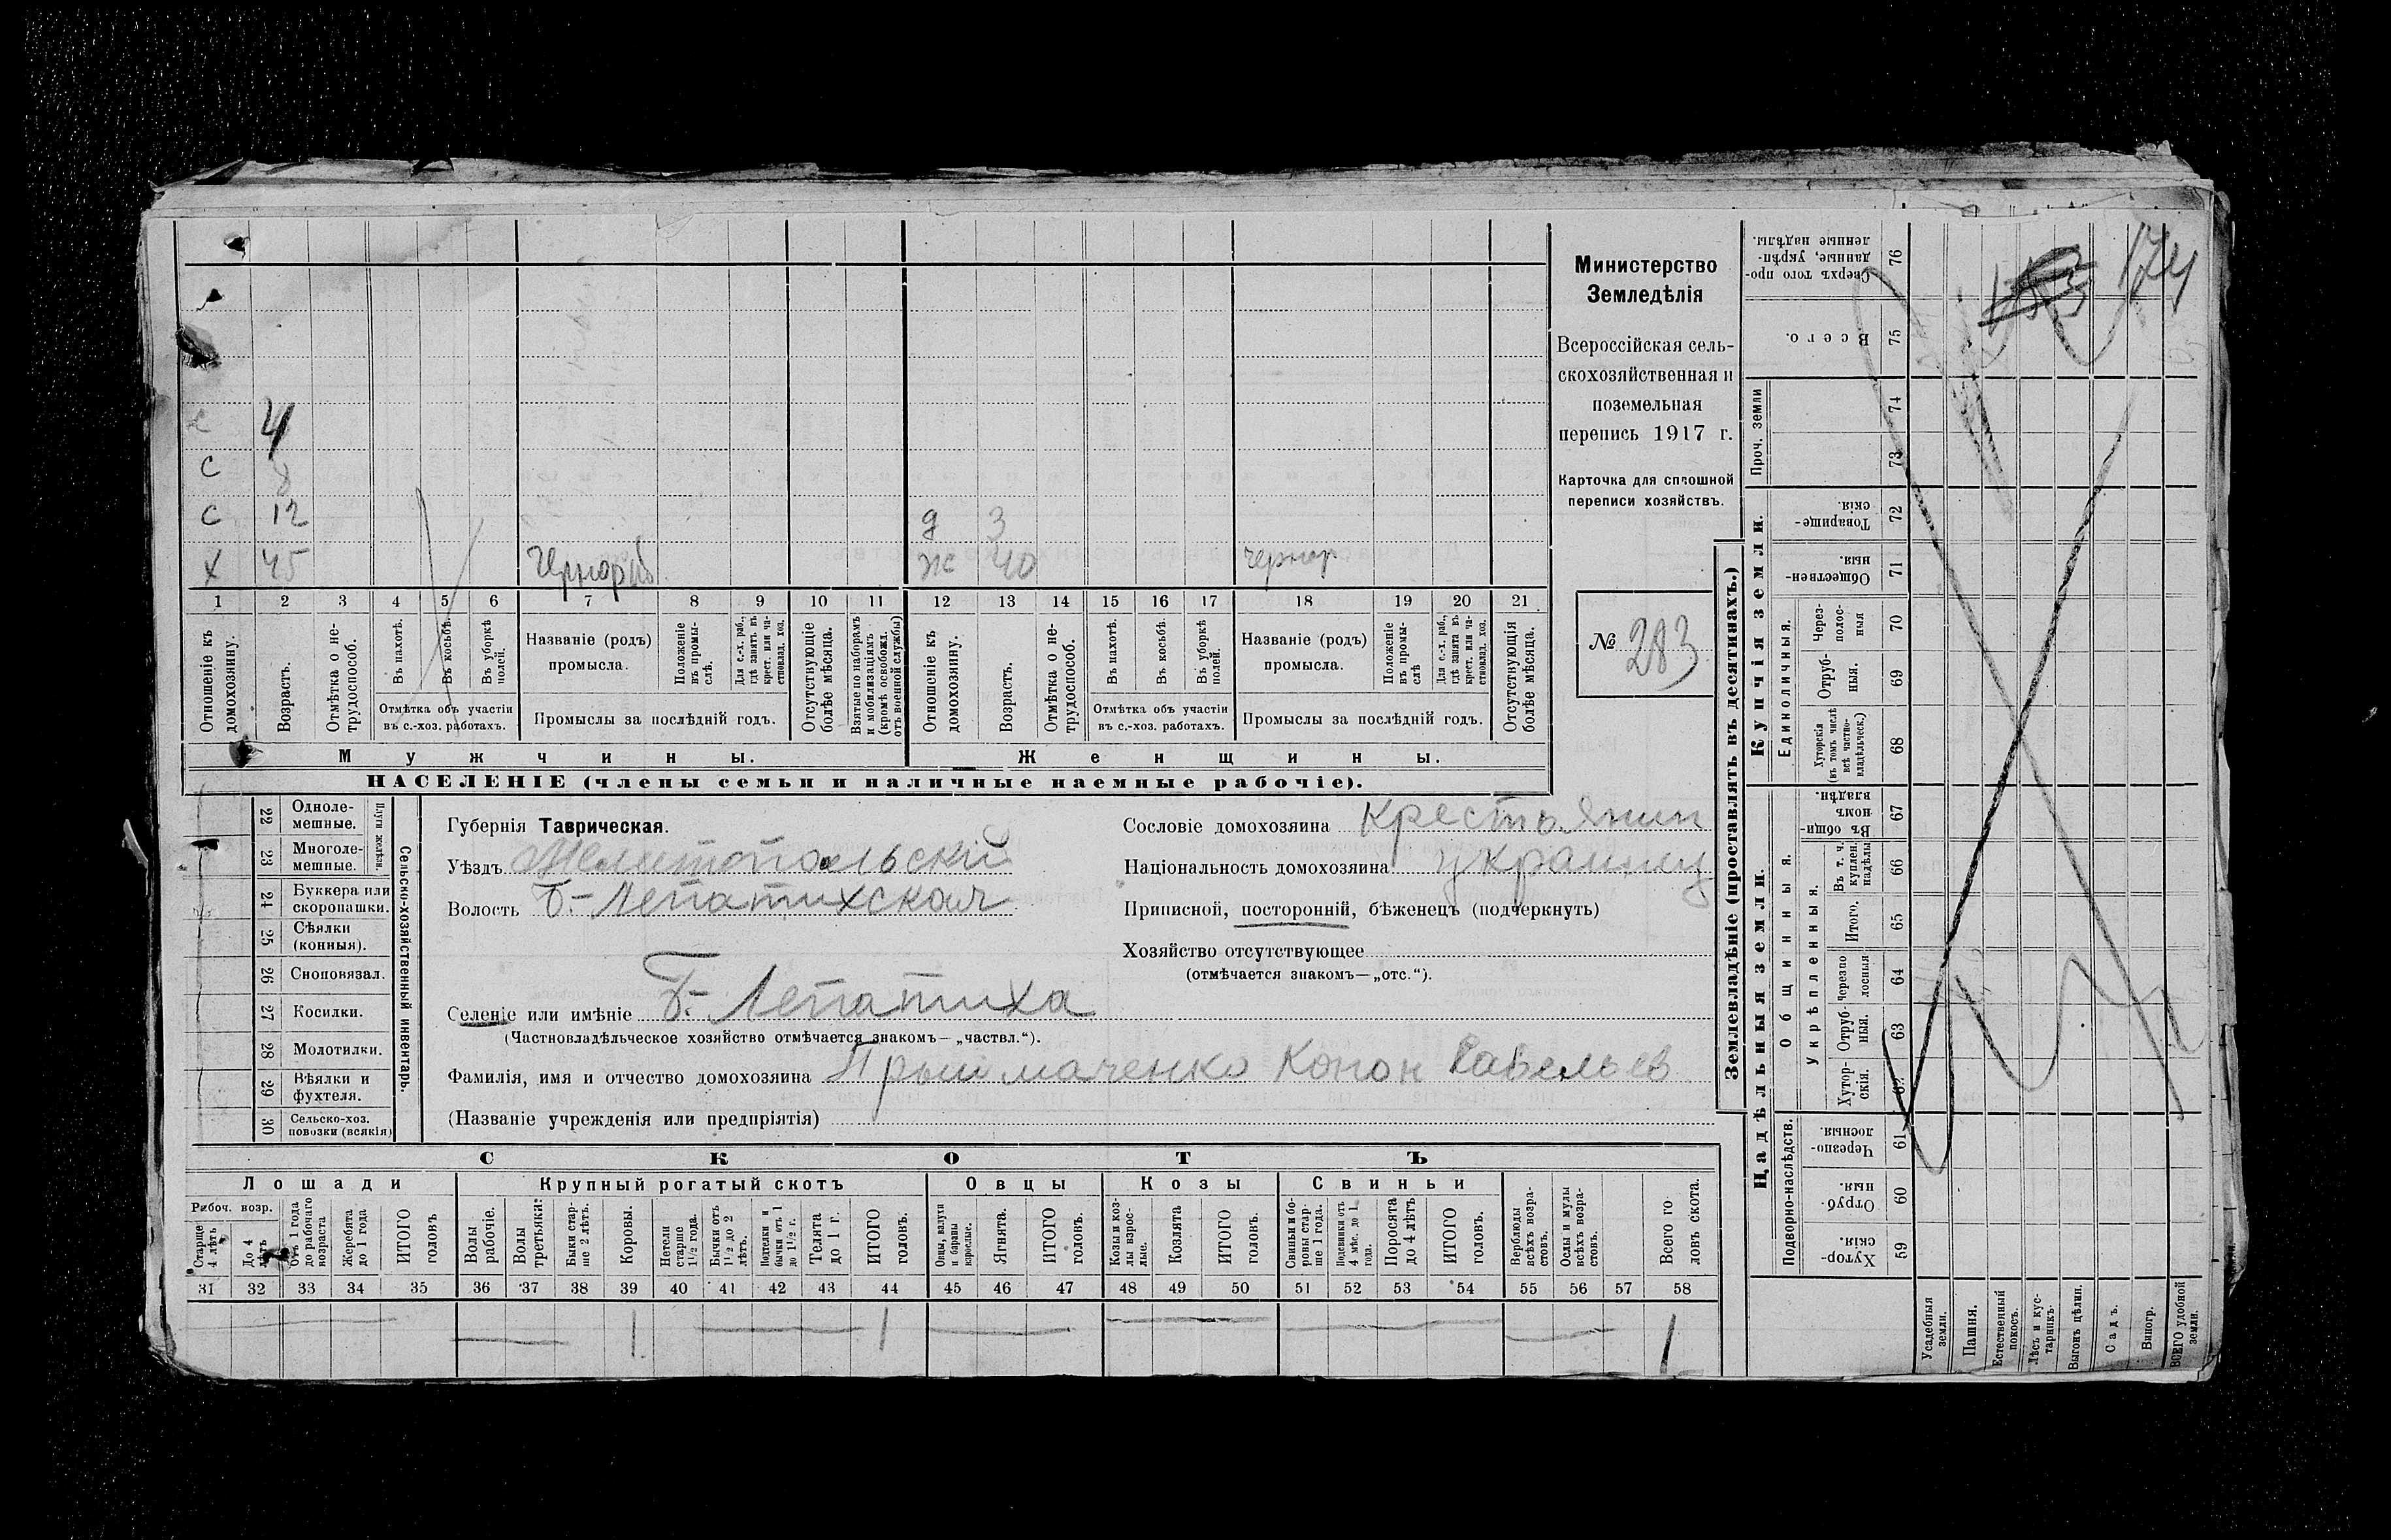 с 4
с 8
с 12 д 3
х 45 Чернораб ж 40 чернор
1 2 3 4 5 6 7 8 9 10 11 12 13 14 15 16 17 18 19 20 21
Отношеніе къ домохозяину.
Возрастъ.
Отмѣтка о нетрудоспособ.
Въ пахотѣ.
Въ косьбѣ.
Въ уборкѣ полей.
Отмѣтка объ участіи
въ с.-хоз. работахъ.
Названіе (родъ)
промысла.
Положеніе въ промыслѣ.
Для с.-х. раб., гдѣ занятъ въ крест. или частновлад. хоз.
Промыслы за послѣдній годъ.
Отсутствующіе болѣе мѣсяца.
Взятые по наборамъ и мобилизаціямъ (кромѣ освобожд. отъ военной службы)
Отношеніе къ домохозяину.
Возрастъ.
Отмѣтка о нетрудоспособ.
Въ пахотѣ.
Въ косьбѣ.
Въ уборкѣ полей.
Отмѣтка объ участіи
въ с.-хоз. работахъ.
Названіе (родъ)
промысла.
Положеніе въ промыслѣ
Для с.-х. раб., гдѣ занята въ крест. или частновлад. хоз.
Промыслы за послѣдній годъ.
Отсутствующія болѣе мѣсяца.
Мужчины.
Женщины.
НАСЕЛЕНІЕ (члены семьи и наличные наемные рабочіе).
Министерство
Земледѣлія
Всероссійская сель-
скохозяйственная и
поземельная
перепись 1917 г.
Карточка для сплошной
переписи хозяйствъ.
№ 283
22 Одноле-
мешные.
23 Многоле-
мешные.
Плуги желѣзн.
24 Буккера или
скоропашки.
25 Сѣялки
(конныя).
26 Сноповязал.
27 Косилки.
28 Молотилки.
29 Вѣялки и
фухтеля.
30 Сельско-хоз.
повозки (всякія)
Сельско-хозяйственный инвентарь.
Губернія Таврическая.
Уѣздъ Мелитопольскій
Волость Б.-Лепатихская
Селеніе или имѣніе Б.-Лепатиха
(Частновладѣльческое хозяйство отмѣчается знакомъ— „частвл.“).
Фамилія, имя и отчество домохозяина Прыймаченко Конон Савельев
(Названіе учрежденія или предпріятія)
Сословіе домохозяина Крестьянин
Національность домохозяина украинец
Приписной, посторонній, бѣженецъ (подчеркнуть)
Хозяйство отсутствующее
(отмѣчается знакомъ—„отс.“).
СКОТЪ
Лошади
Рабоч. возр.
Старше 4 лѣтъ
До 4 лѣтъ
Отъ 1 года до рабочаго возраста
Жеребята до 1 года
ИТОГО головъ
Крупный рогатый скотъ
Волы рабочіе.
Волы третьяки.
Быки старше 2 лѣтъ.
Коровы.
Нетели старше 1 1/2 года.
Бычки отъ 1 1/2 до 2 лѣтъ.
Подтелки и бычки отъ 1 до 1 1/2 г.
Телята до 1 г.
ИТОГО головъ.
Овцы
Овцы, валухи и бараны взрослые.
Ягнята.
ИТОГО головъ.
Козы
Козы и козлы взрослые.
Козлята
ИТОГО головъ.
Свиньи
Свиньи и боровы старше 1 года.
Подсвинки отъ 4 мѣс. до 1 года.
Поросята до 4 лѣтъ
ИТОГО головъ.
Верблюды всѣхъ возрастовъ.
Ослы и мулы всѣхъ возрастовъ.
Всего головъ скота.
31 32 33 34 35 36 37 38 39 40 41 42 43 44 45 46 47 48 49 50 51 52 53 54 55 56 57 58
1 1 1
Землевладѣніе (проставлять въ десятинахъ.)
Сверхъ того проданные, укрѣпленные надѣлы. 76
Всего. 75
Проч. земли 74
73
Купчія земли.
Товарищескія. 72
Общественныя. 71
Единоличныя.
Черезполосныя 70
Отрубныя. 69
Хуторскія (въ томъ числѣ всѣ частновладѣльческ.) 68
Надѣльныя земли.
Общинныя.
Въ общинномъ владѣн. 67
Укрѣпленныя.
Въ т. ч. куплен. надѣлы 66
Итого. 65
Черезполосныя 64
Отрубныя. 63
Хуторскія. 62
Подворно-наслѣдств.
Черезполосныя. 61
Отрубныя. 60
Хуторскія. 59
Усадебныя земли.
Пашня.
Естественный покосъ.
Лѣсъ и кустарникъ.
Выгонъ цѣлин.
Садъ.
Виногр.
ВСЕГО удобной земли.
174